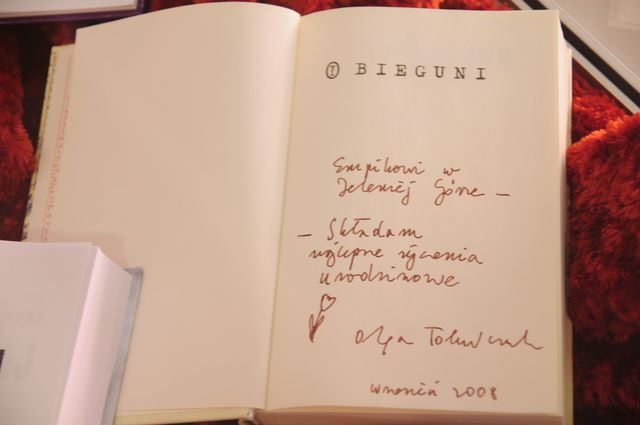 7 BIEGUNI
Empikowi w
Jeleniej Górze –
– Składam
najlepsze życzenia
urodzinowe
Olga Tokarczuk
wrzesień 2008